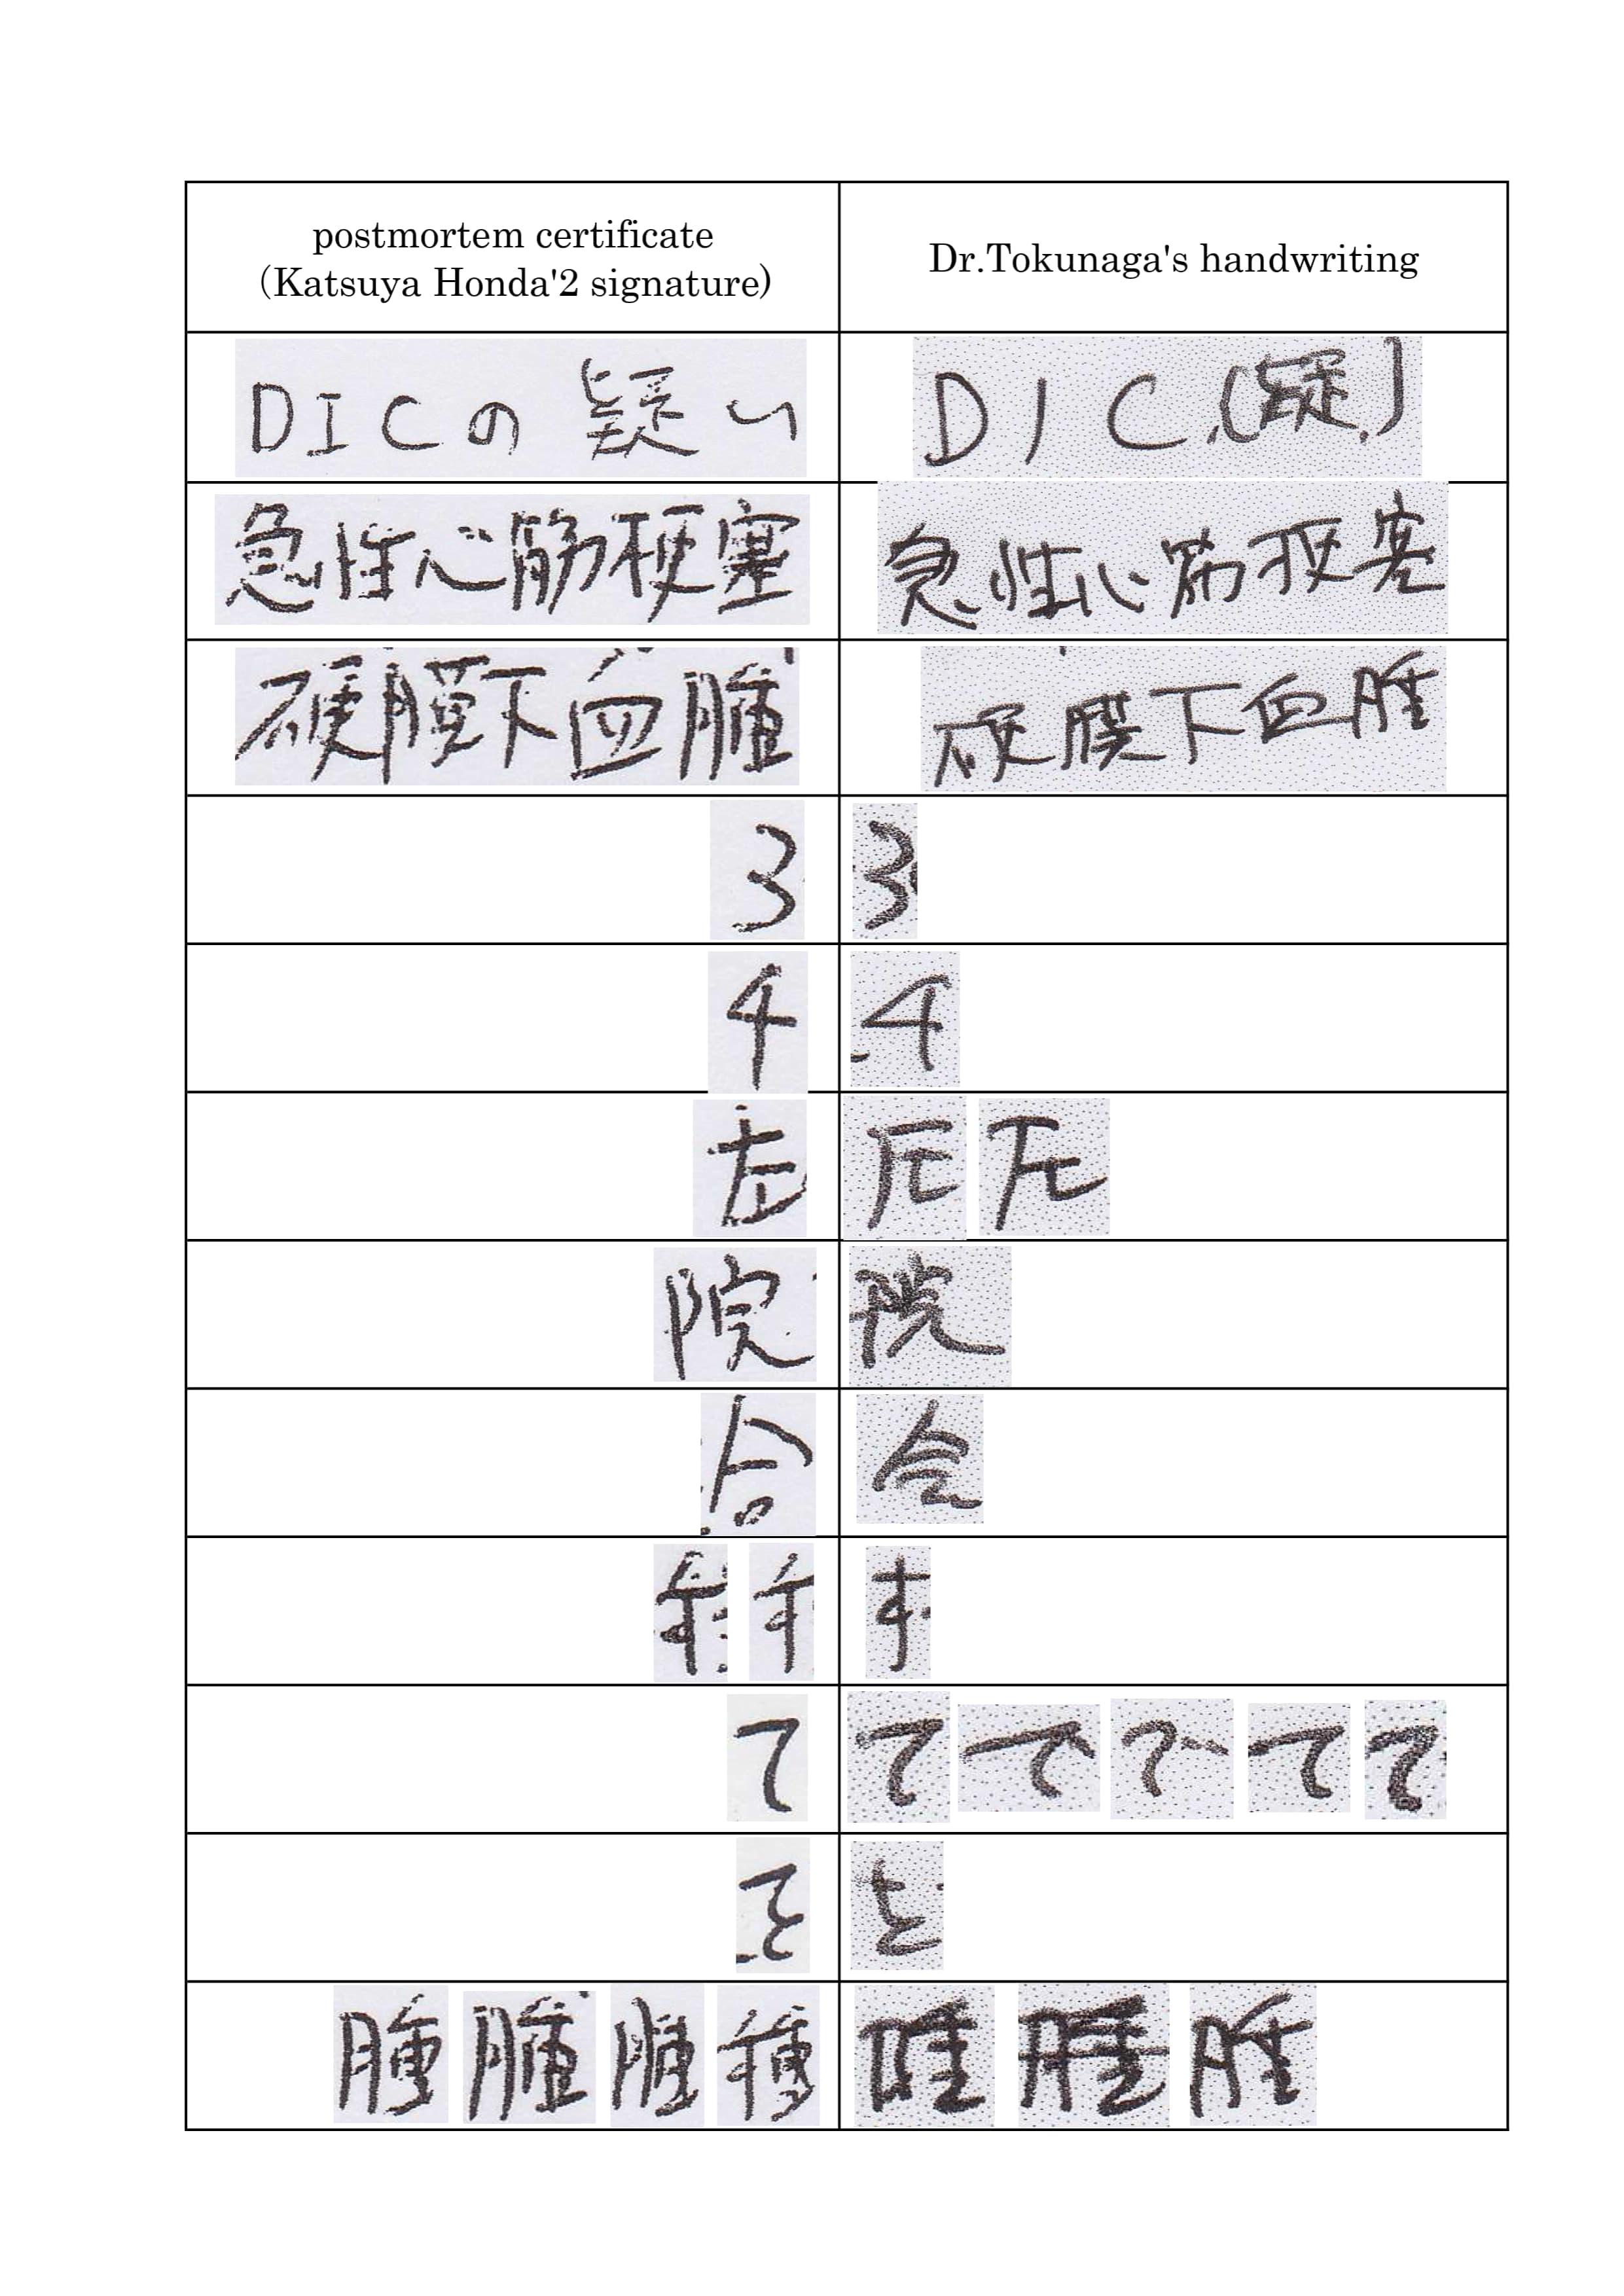 postmortem certificate
(Katsuya Honda'2 signature)
Dr.Tokunaga's handwriting
DICの疑い
DIC.(疑.)
急性心筋梗塞
急性心筋梗塞
硬膜下血腫
硬膜下血腫
3
3
4
4
左
左 左
院
院
合
会
て
て て て て て
と
腫 腫 腫 種
腫 腫